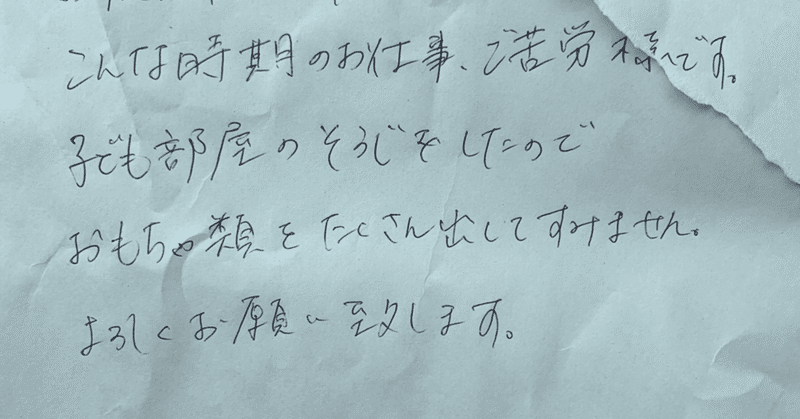 こんな時期のお仕事、ご苦労様です。
子ども部屋のそうじをしたので
おもちゃ類をたくさん出してすみません。
よろしくお願い致します。